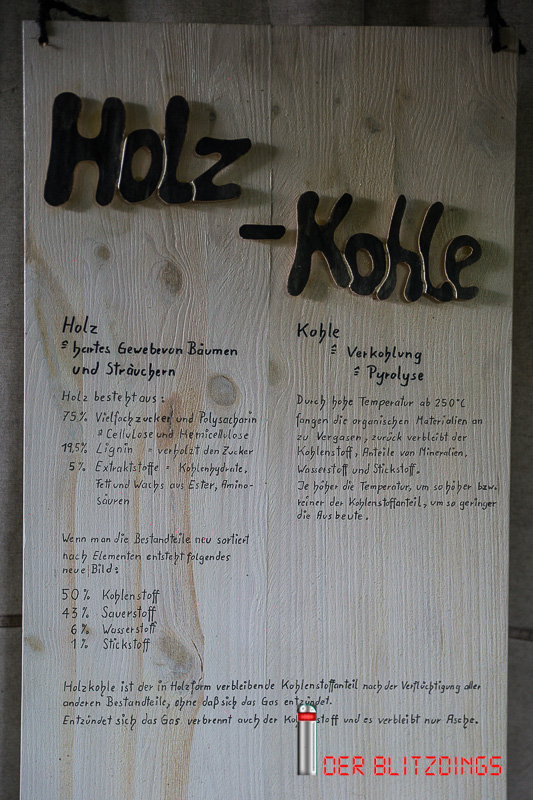 Holz
-Kohle
Holz
≙ hartes Gewebe von Bäumen
und Sträuchern
Holz besteht aus:
75% Vielfachzucker und Polysacharin
≙ Cellulose und Hemicellulose
19,5% Lignin = verholzt den Zucker
5% Extraktstoffe = Kohlenhydrate,
Fett und Wachs aus Ester, Amino-
säuren
Wenn man die Bestandteile neu sortiert
nach Elementen entsteht folgendes
neue Bild:
50% Kohlenstoff
43% Sauerstoff
6% Wasserstoff
1% Stickstoff
Kohle
≙ Verkohlung
≙ Pyrolyse
Durch hohe Temperatur ab 250°C
fangen die organischen Materialien an
zu Vergasen, zurück verbleibt der
Kohlenstoff, Anteile von Mineralien,
Wasserstoff und Stickstoff.
Je höher die Temperatur, um so höher bzw.
reiner der Kohlenstoffanteil, um so geringer
die Ausbeute.
Holzkohle ist der in Holzform verbleibende Kohlenstoffanteil nach der Verflüchtigung aller
anderen Bestandteile, ohne daß sich das Gas entzündet.
Entzündet sich das Gas verbrennt auch der Kohlenstoff und es verbleibt nur Asche.
DER BLITZDINGS